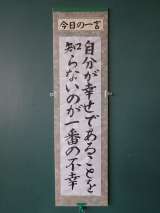 今日の一言
自分が幸せであることを
知らないのが一番の不幸